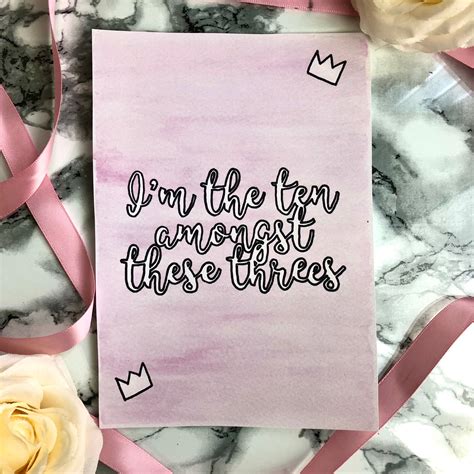 I'm the ten
amongst
these threes